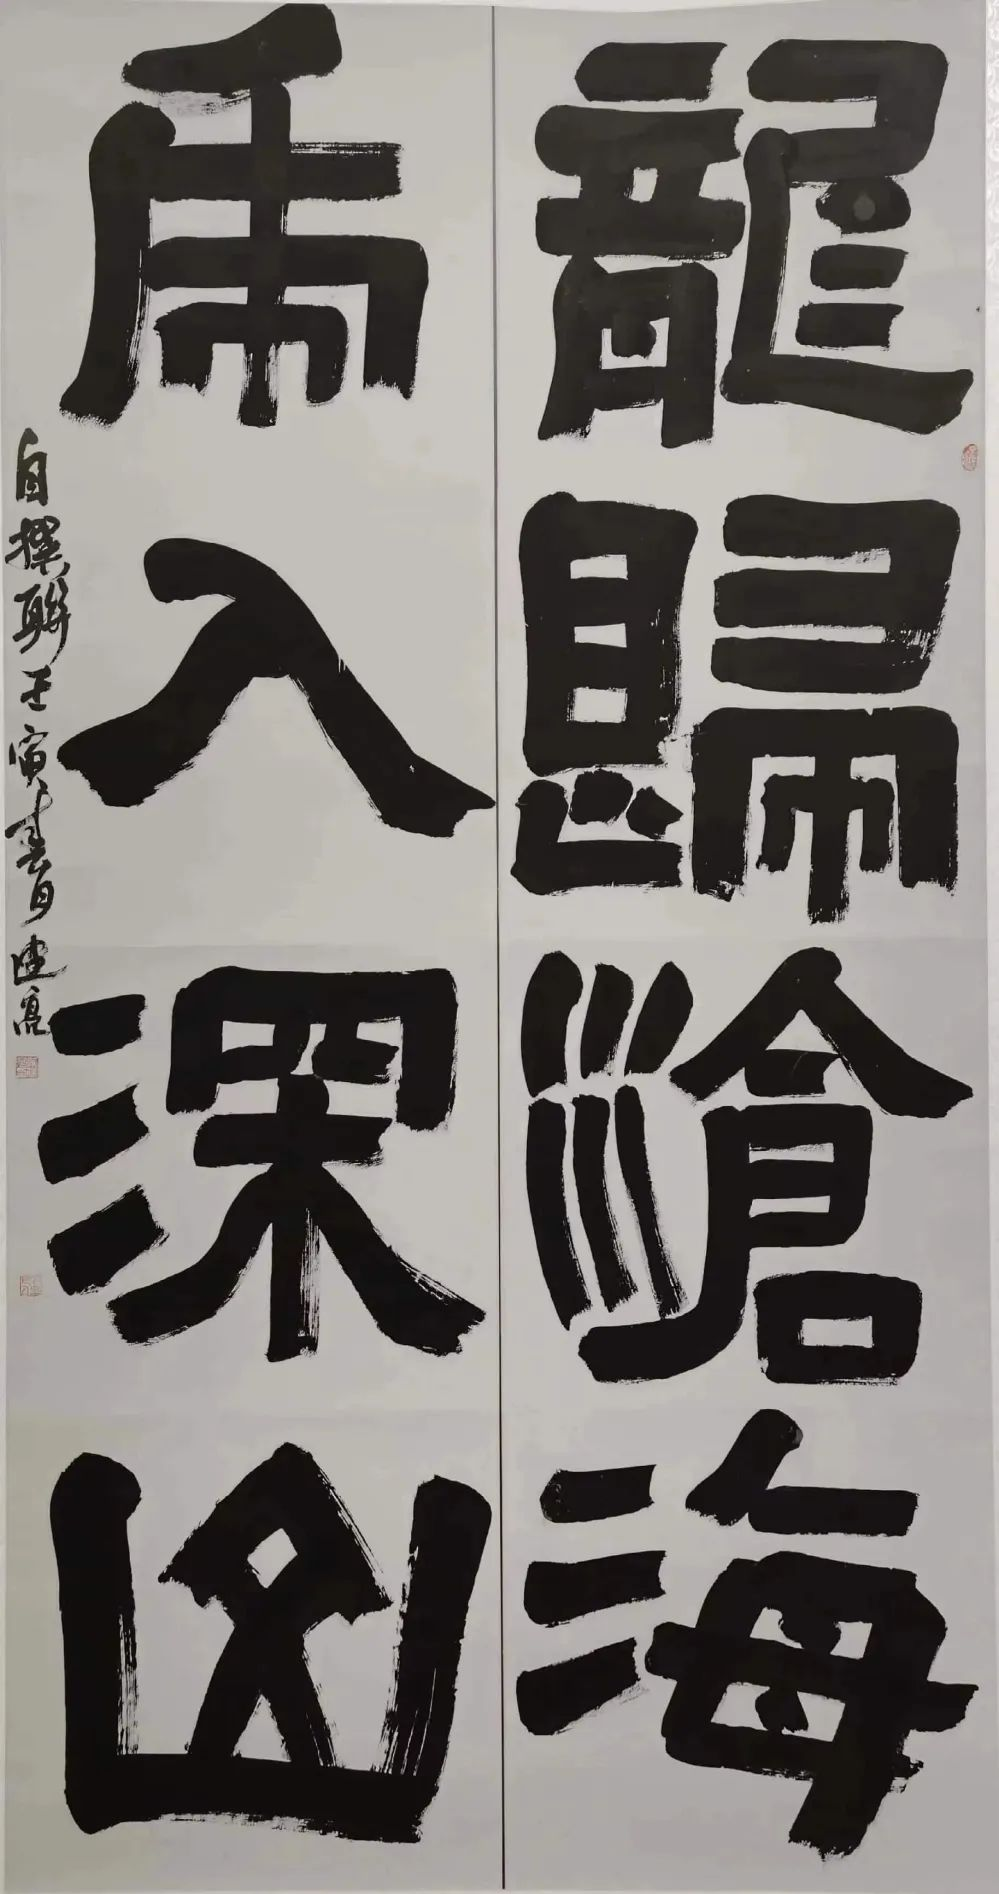 龍歸滄海
虎入深山
自撰聯壬寅春月建亮